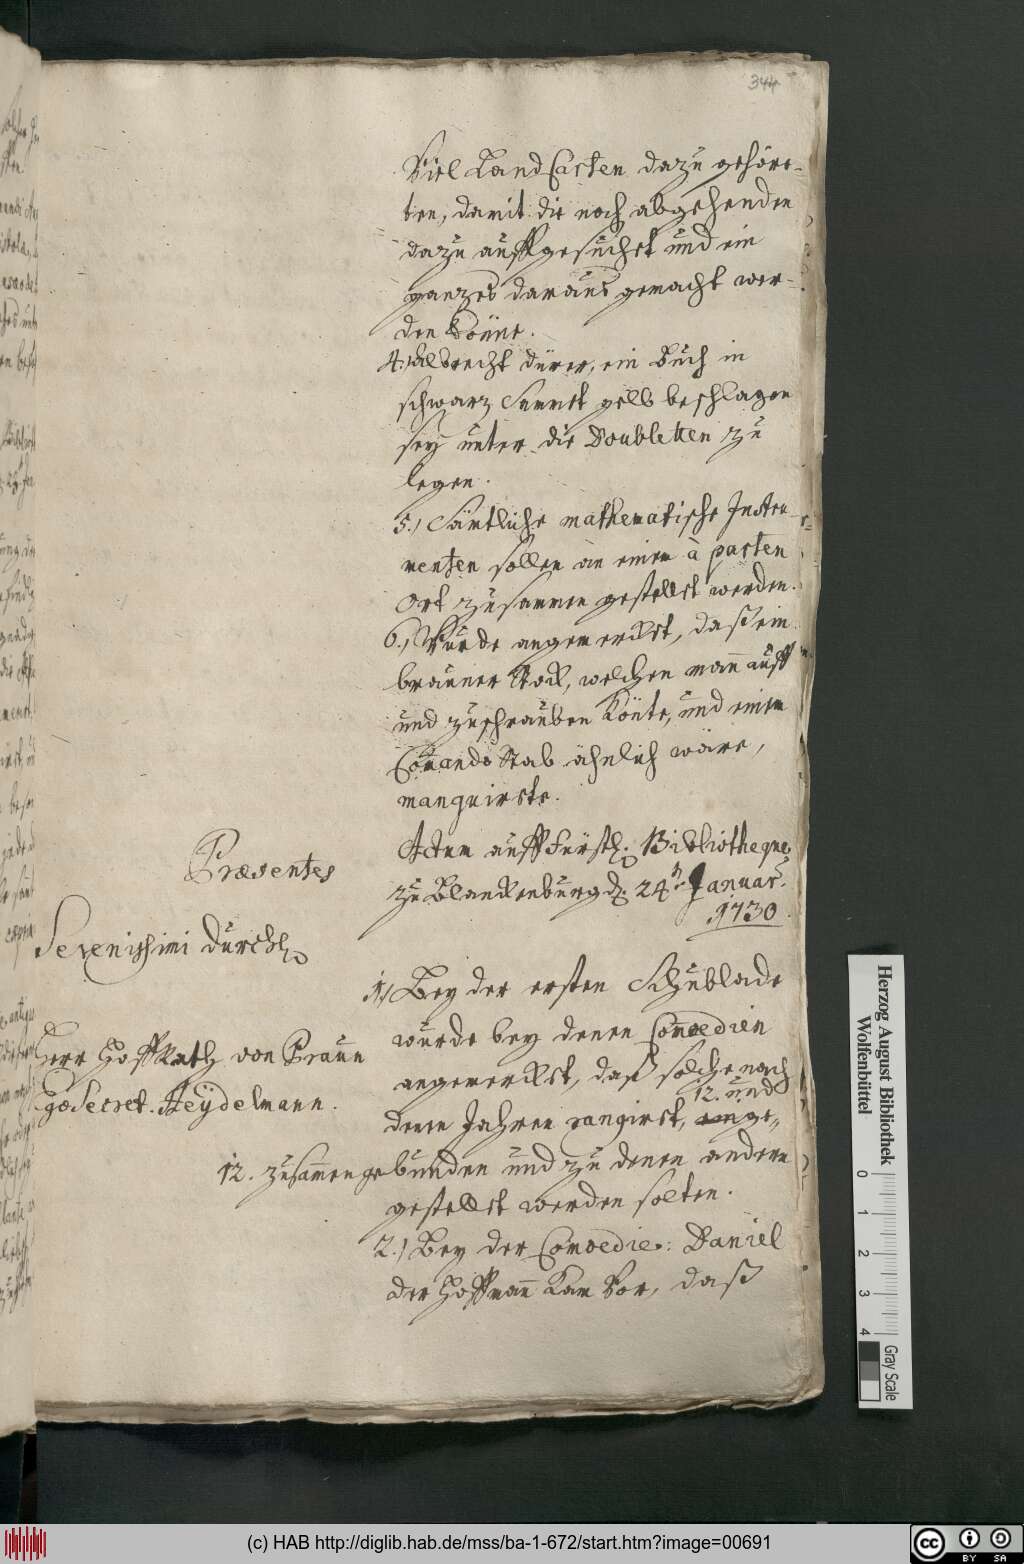 344
Viel LandCarten dazu gehöre-
ten, damit die noch abgehenden
dazu auffgesuchet und ein
ganzes daraus gemacht wer-
den könne.
4.) Albrecht Dürer, ein Buch in
schwarz Sammet gelb beschlagen
sey unter die Doubletten zu
legen.
5.) Sämtliche mathematische Instru-
menten sollen an einem à parten
Ort zusammen gestellet werden.
6.) Wurde angemercket, daß ein
brauner Stock, welchen man̄ auff
und zuschrauben könte, und einem
Com̄ando Stab ähnlich wäre,
manquirete.
Actum auff Fürstl. Bibliotheque
zu Blanckenburg d. 24t. Januar.
1730.
Præsentes
Serenissimi Durchl.
Herr HoffRath von Praun
Ego Secret. Heÿdelmann.
1.) Bey der ersten Schublade
wurde bey denen Comoedien
angemercket, daß solche nach
denen Jahren rangiret, 12. und
12. zusam̄engebunden und zu denen andern
gestellet werden solten.
2.) Bey der Comoedie: Daniel
der Hoffman̄ kam vor, daß
Herzog August Bibliothek
Wolfenbüttel
0 1 2 3 4
Gray Scale
(c) HAB http://diglib.hab.de/mss/ba-1-672/start.htm?image=00691
cc BY SA